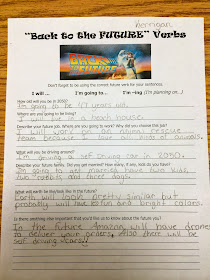 Kerrigan
"Back to the FUTURE" Verbs
BACK TO THE FUTURE
Don't forget to be using the correct future verb for your sentences.
I will ... I'm going to... I'm -ing (I'm planning on...)
How old will you be in 2050?
I'm going to be 47 years old.
Where are you going to be living?
I will live in a beach house.
Describe your future job. Where are you going to work? Why did you choose that job?
I will work for an animal rescue
team because I love all kinds of animals.
What will you be driving around?
I'm driving a self driving car in 2050.
Describe your future family. Did you get married? How many, if any, kids do you have?
I'm going to get married, have two kids,
two rabbits and three dogs.
What will earth be like/look like in the future?
Earth will look pretty similar but
probably will have led fun and bright colors.
Is there anything else important that you'd like us to know about the future you?
In the future Amazon will have drones
to deliver your orders. Also there will be
self driving cars!!